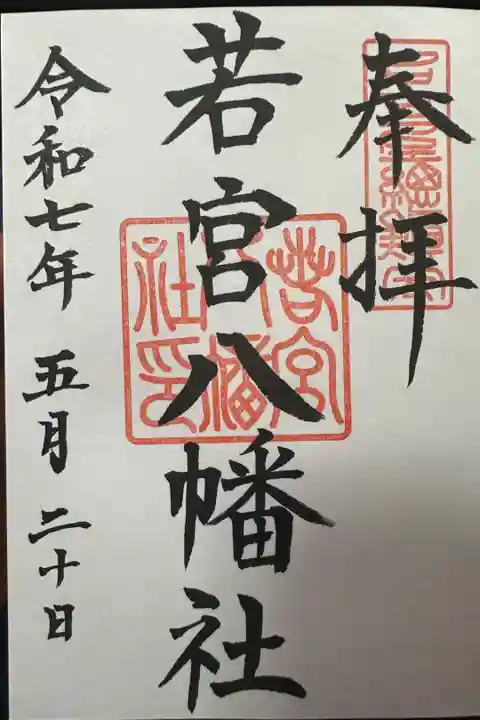 奉拝
若宮八幡社
若宮八幡社印
令和七年 五月 二十日